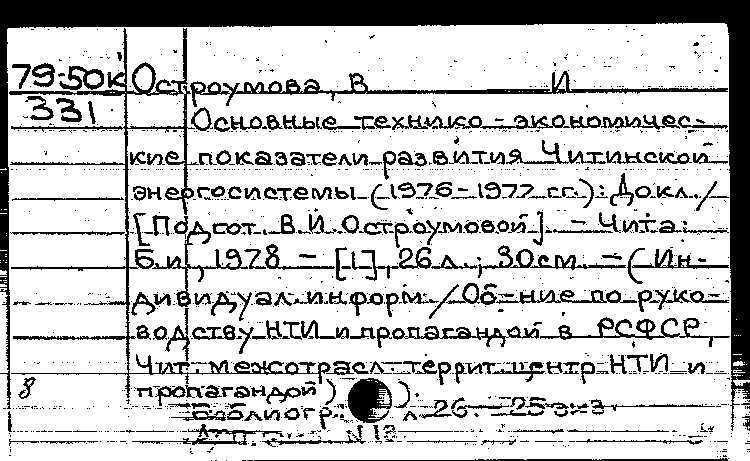 79-50к Остроумова, В И
331 Основные технико-экономичес-
кие показатели развития Читинской
энергосистемы (1976-1977 гг.): Докл./
[Подгот. В.И. Остроумовой]. - Чита:
Б.и., 1978 - [1], 26 л.; 30 см. - (Ин-
дивидуал. информ. / Об-ние по руко-
водству НТИ и пропагандой в РСФСР,
Чит. межотрасл. террит. центр НТИ и
8 пропагандой) ).
Библиогр.: л. 26. - 25 экз.
N 18